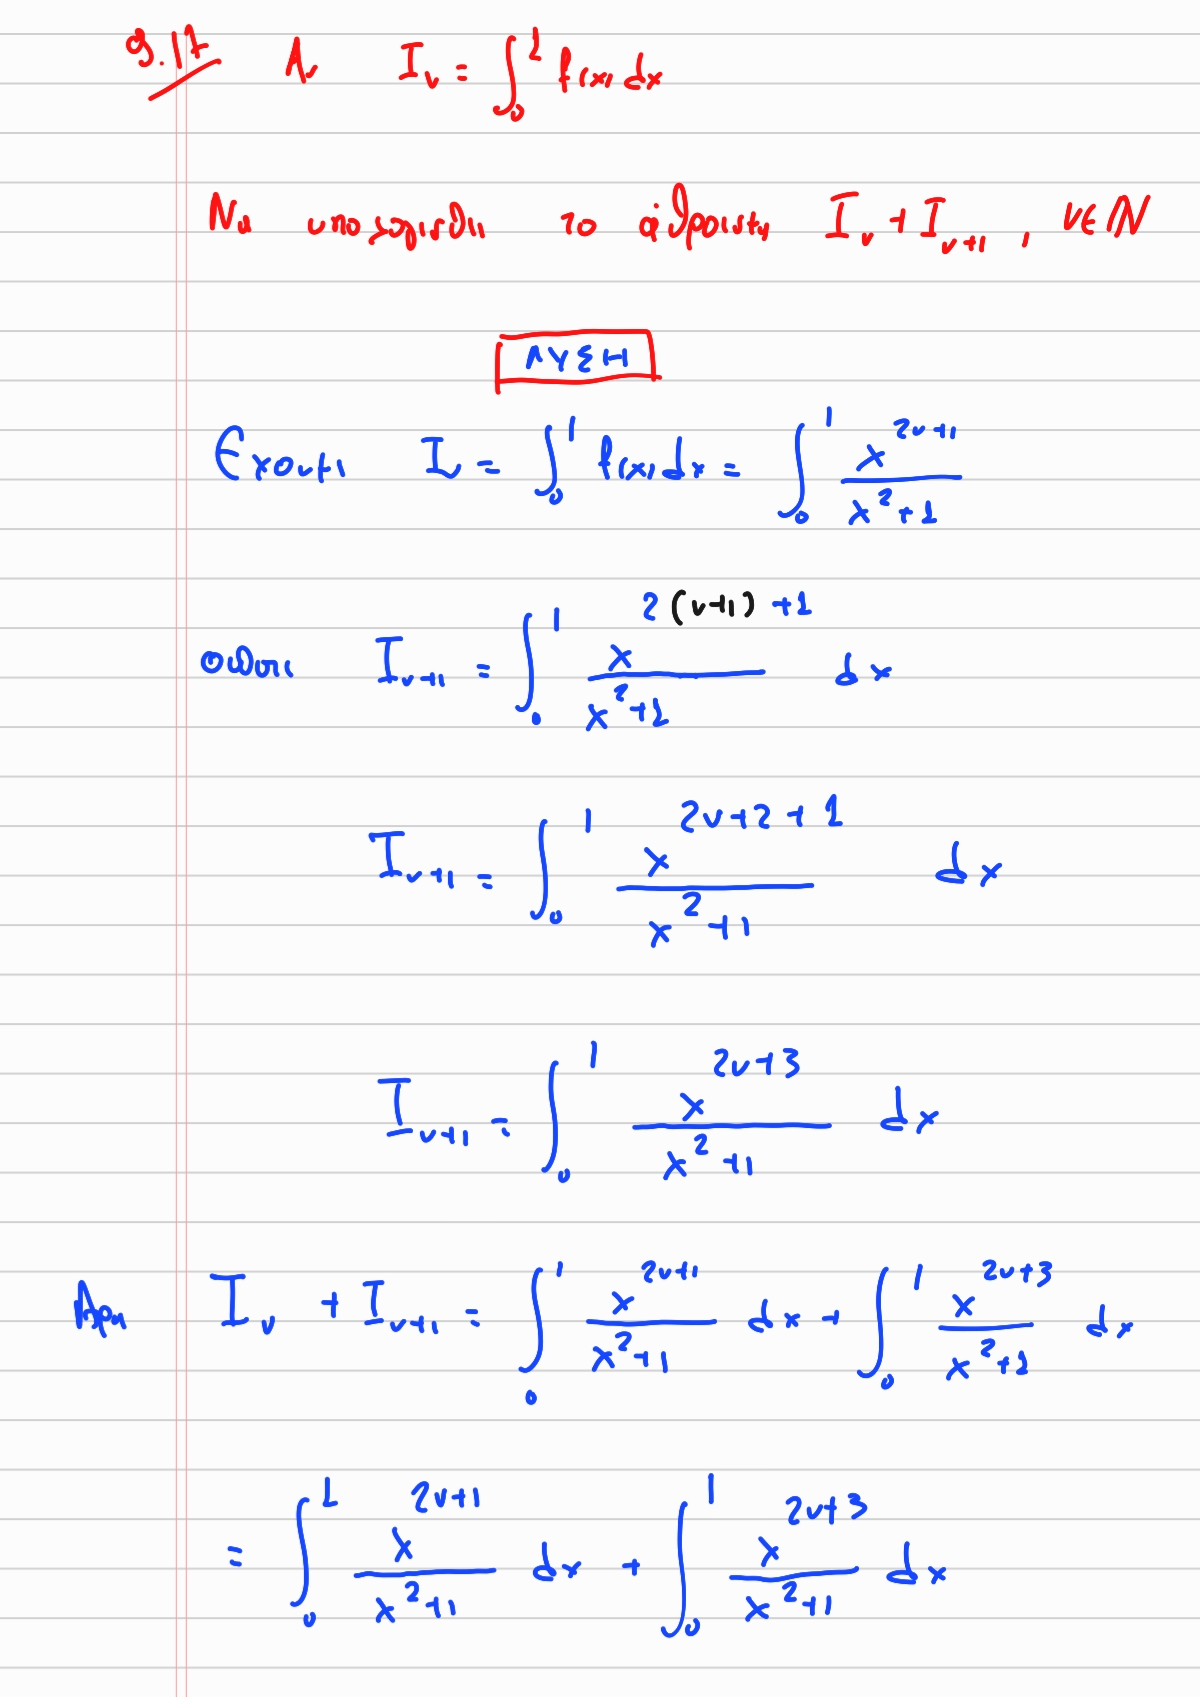 9.17 Αν I_ν = ∫_0^1 f(x) dx
Να υπολογισθεί το άθροισμα I_ν + I_{ν+1} , ν∈ℕ
ΛΥΣΗ
Εχουμε I_ν = ∫_0^1 f(x) dx = ∫_0^1 x^{2ν+1}/(x^2+1)
οπότε I_{ν+1} = ∫_0^1 x^{2(ν+1)+1}/(x^2+1) dx
I_{ν+1} = ∫_0^1 x^{2ν+2+1}/(x^2+1) dx
I_{ν+1} = ∫_0^1 x^{2ν+3}/(x^2+1) dx
Αρα I_ν + I_{ν+1} = ∫_0^1 x^{2ν+1}/(x^2+1) dx + ∫_0^1 x^{2ν+3}/(x^2+1) dx
= ∫_0^1 x^{2ν+1}/(x^2+1) dx + ∫_0^1 x^{2ν+3}/(x^2+1) dx